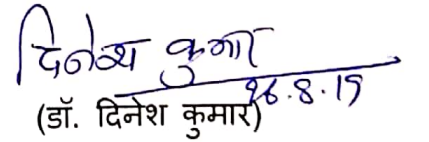 दिनेश कुमार
26.8.19
(डॉ. दिनेश कुमार)